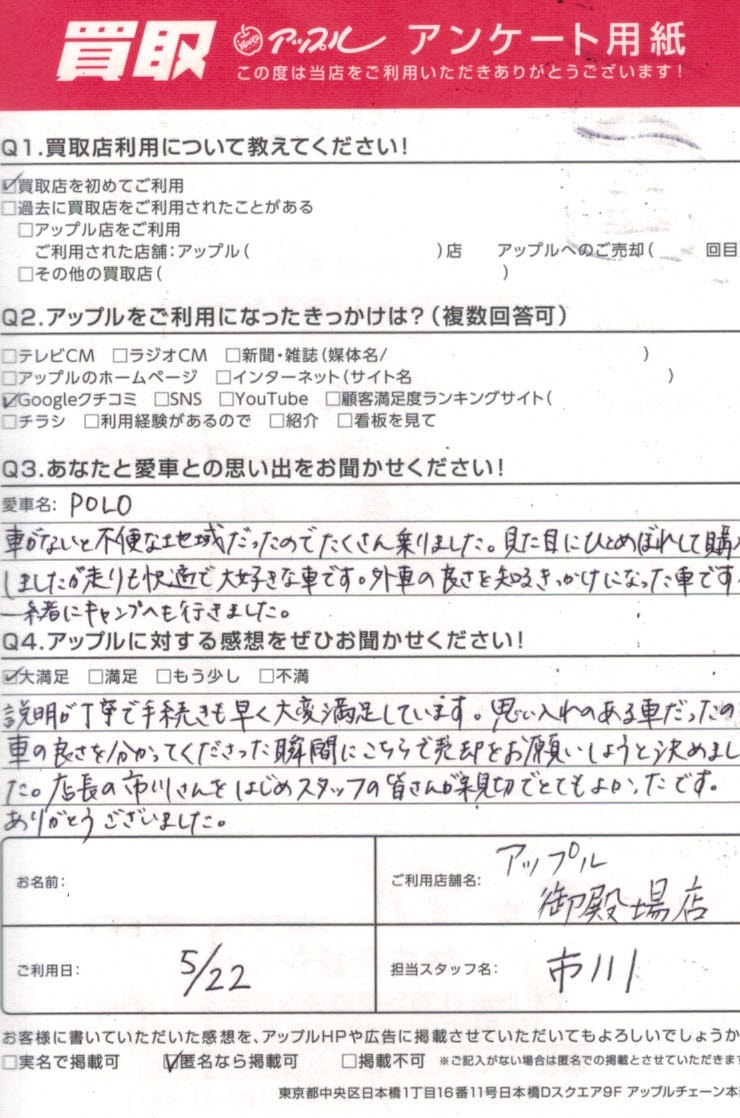 買取 アップル アンケート用紙
この度は当店をご利用いただきありがとうございます!
Q1.買取店利用について教えてください!
☑買取店を初めてご利用
□過去に買取店をご利用されたことがある
□アップル店をご利用
ご利用された店舗:アップル( )店 アップルへのご売却( 回目
□その他の買取店( )
Q2.アップルをご利用になったきっかけは?(複数回答可)
□テレビCM □ラジオCM □新聞・雑誌(媒体名/ )
□アップルのホームページ □インターネット(サイト名 )
☑Googleクチコミ □SNS □YouTube □顧客満足度ランキングサイト(
□チラシ □利用経験があるので □紹介 □看板を見て
Q3.あなたと愛車との思い出をお聞かせください!
愛車名: POLO
車がないと不便な地域だったのでたくさん乗りました。見た目にひとめぼれして購入
しましたが走りも快適で大好きな車です。外車の良さを知るきっかけになった車です
一緒にキャンプへも行きました。
Q4.アップルに対する感想をぜひお聞かせください!
☑大満足 □満足 □もう少し □不満
説明が丁寧で手続きも早く大変満足しています。思い入れのある車だったの
車の良さを分かってくださった瞬間にこちらで売却をお願いしようと決めまし
た。店長の市川さんをはじめスタッフの皆さんが親切でとてもよかったです。
ありがとうございました。
お名前: ご利用店舗名: アップル
御殿場店
ご利用日: 5/22 担当スタッフ名: 市川
お客様に書いていただいた感想を、アップルHPや広告に掲載させていただいてもよろしいでしょうか
□実名で掲載可 ☑匿名なら掲載可 □掲載不可 ※ご記入がない場合は匿名での掲載とさせていただきます
東京都中央区日本橋1丁目16番11号日本橋Dスクエア9F アップルチェーン本